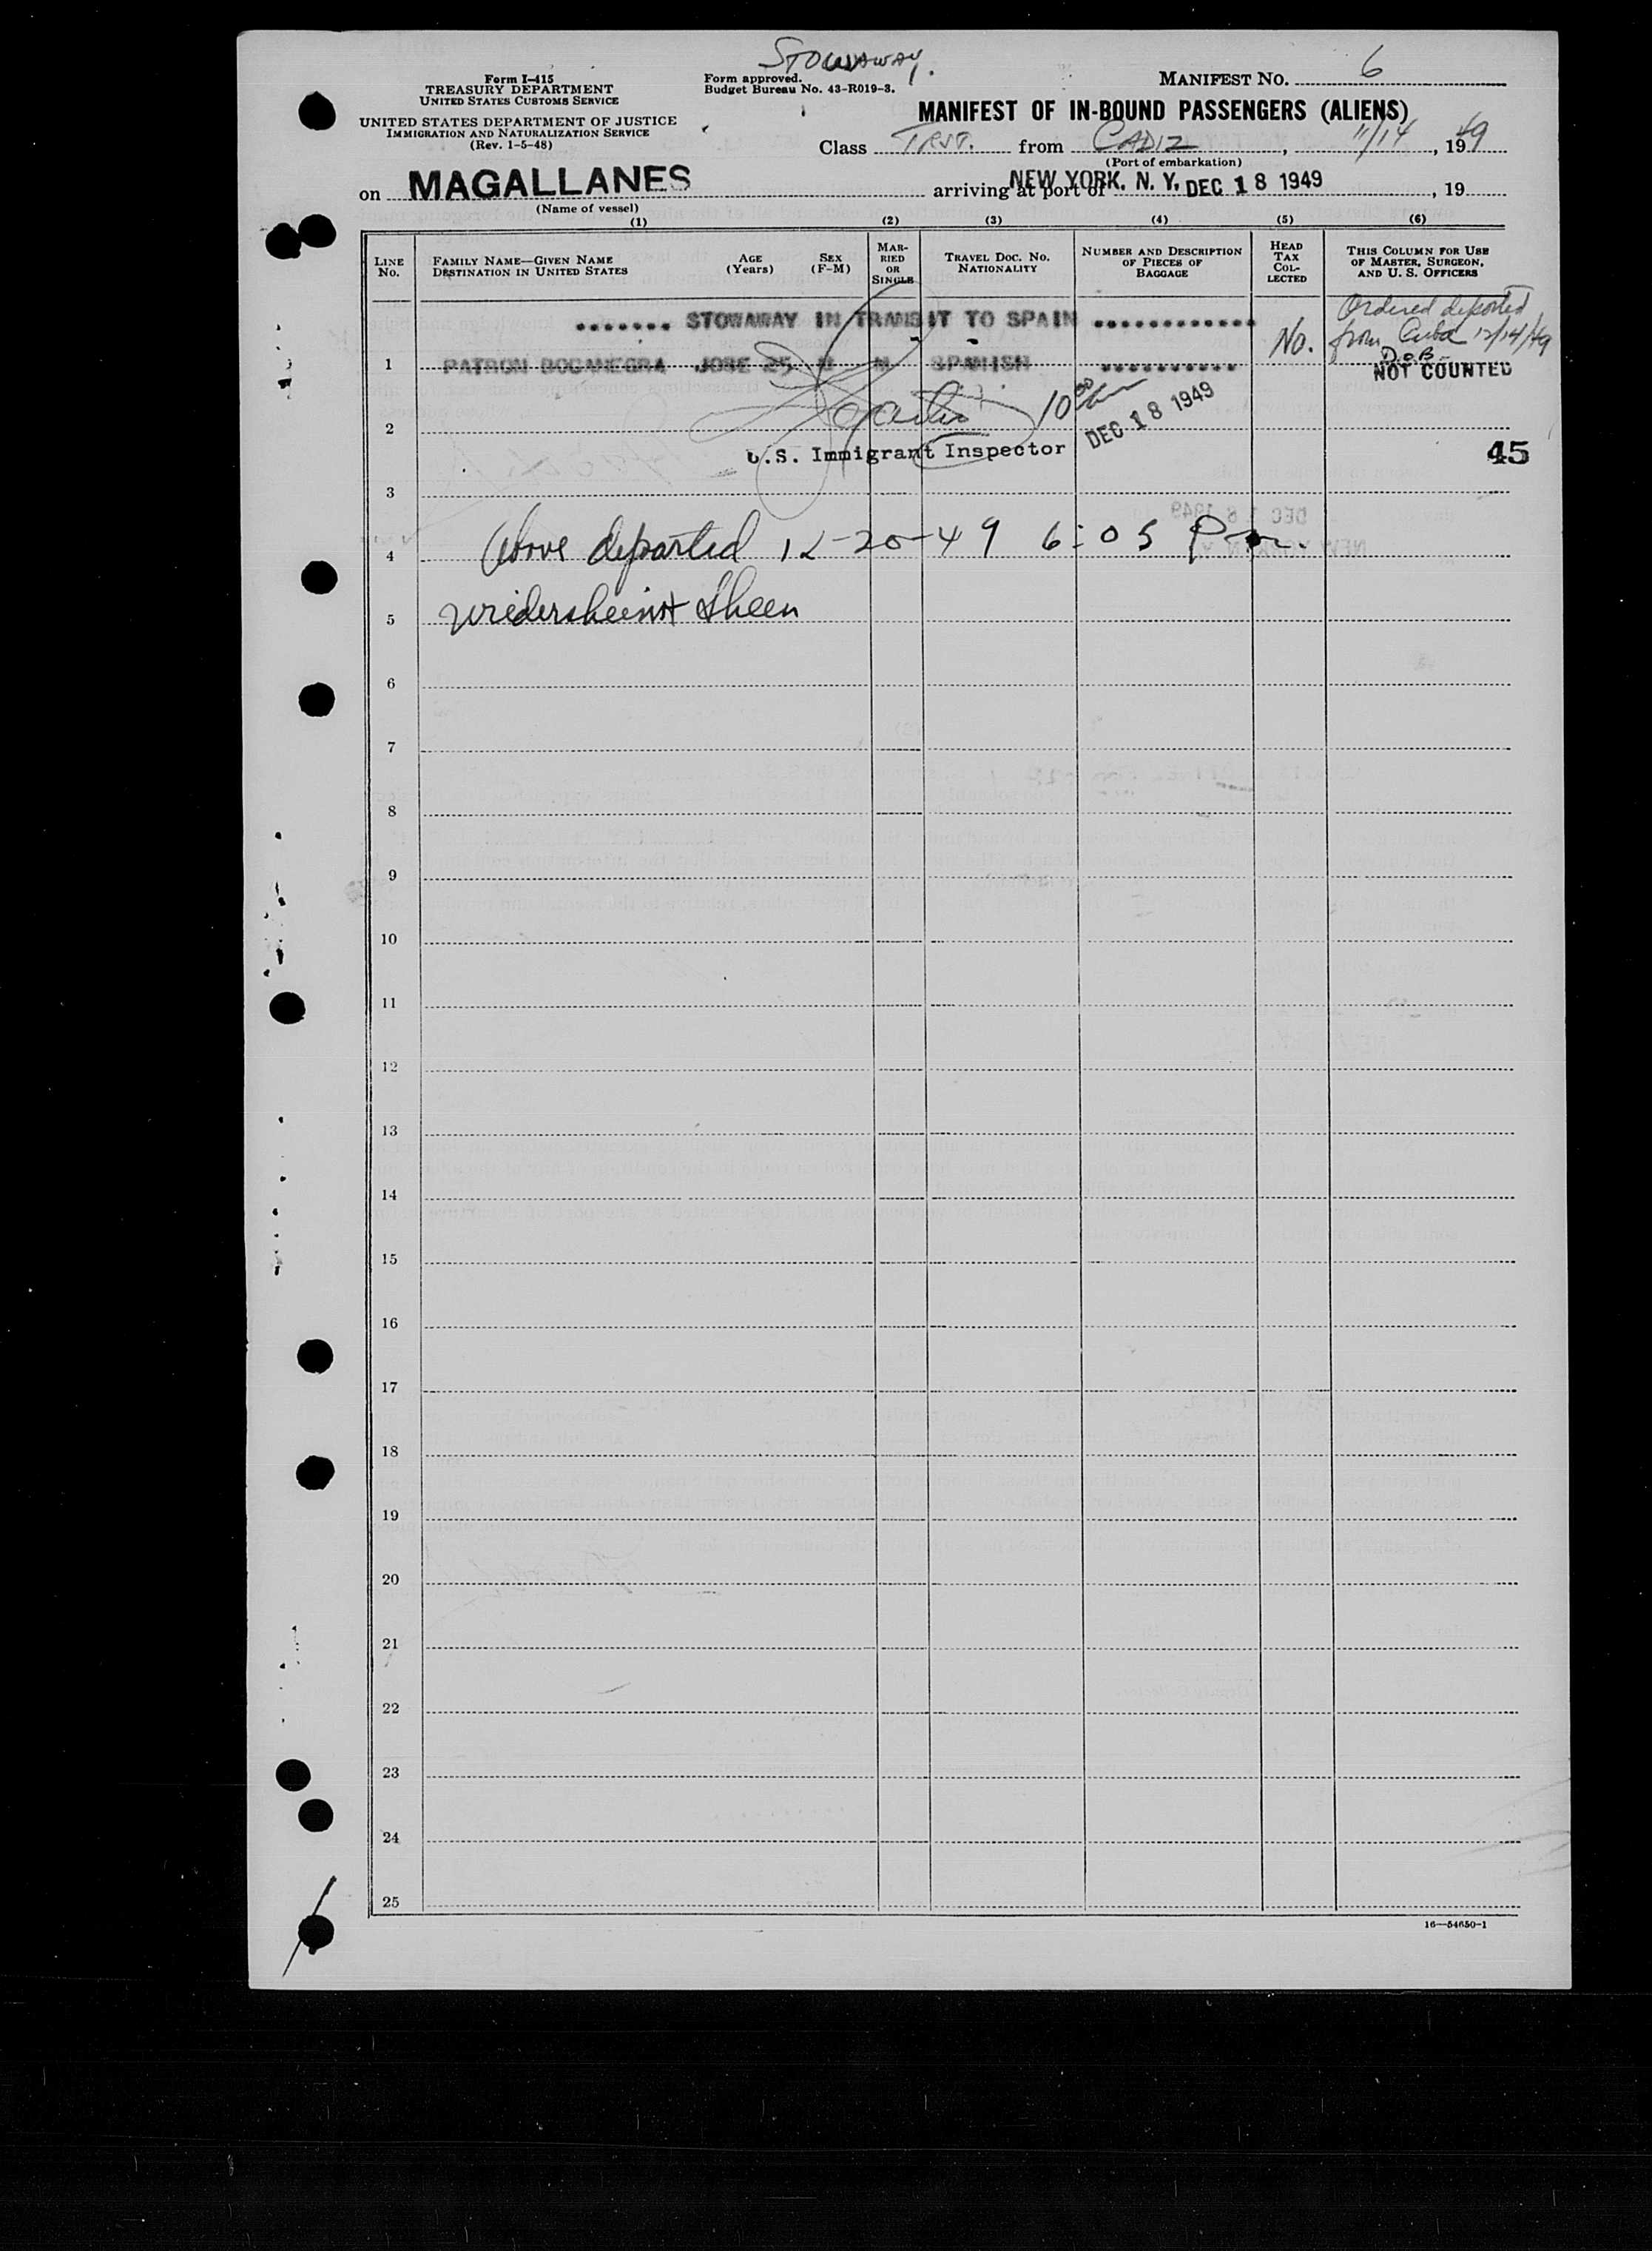 STOWAWAY.
Form I-415
TREASURY DEPARTMENT
UNITED STATES CUSTOMS SERVICE
UNITED STATES DEPARTMENT OF JUSTICE
IMMIGRATION AND NATURALIZATION SERVICE
(Rev. 1-5-48)
Form approved.
Budget Bureau No. 43-R019-3.
MANIFEST NO. 6
MANIFEST OF IN-BOUND PASSENGERS (ALIENS)
Class TRST. from CADIZ, 11/14, 1949
(Port of embarkation)
on MAGALLANES arriving at port of NEW YORK, N. Y. DEC 18 1949, 19
(Name of vessel)
(1) (2) (3) (4) (5) (6)
LINE NO.
FAMILY NAME—GIVEN NAME
DESTINATION IN UNITED STATES
AGE (Years)
SEX (F-M)
MARRIED OR SINGLE
TRAVEL DOC. NO.
NATIONALITY
NUMBER AND DESCRIPTION OF PIECES OF BAGGAGE
HEAD TAX COLLECTED
THIS COLUMN FOR USE OF MASTER, SURGEON, AND U. S. OFFICERS
....... STOWAWAY IN TRANSIT TO SPAIN .............
Ordered deported
from Cuba 12/14/49
1 PATRON BOCANEGRA JOSE 25 M M SPANISH .......... No.
D.O.B.
NOT COUNTED
2
10 00 am
DEC 18 1949
U.S. Immigrant Inspector
45
3
4 Above departed 12-20-49 6:05 Pm.
5 Sheen
6
7
8
9
10
11
12
13
14
15
16
17
18
19
20
21
22
23
24
25
16—54650-1